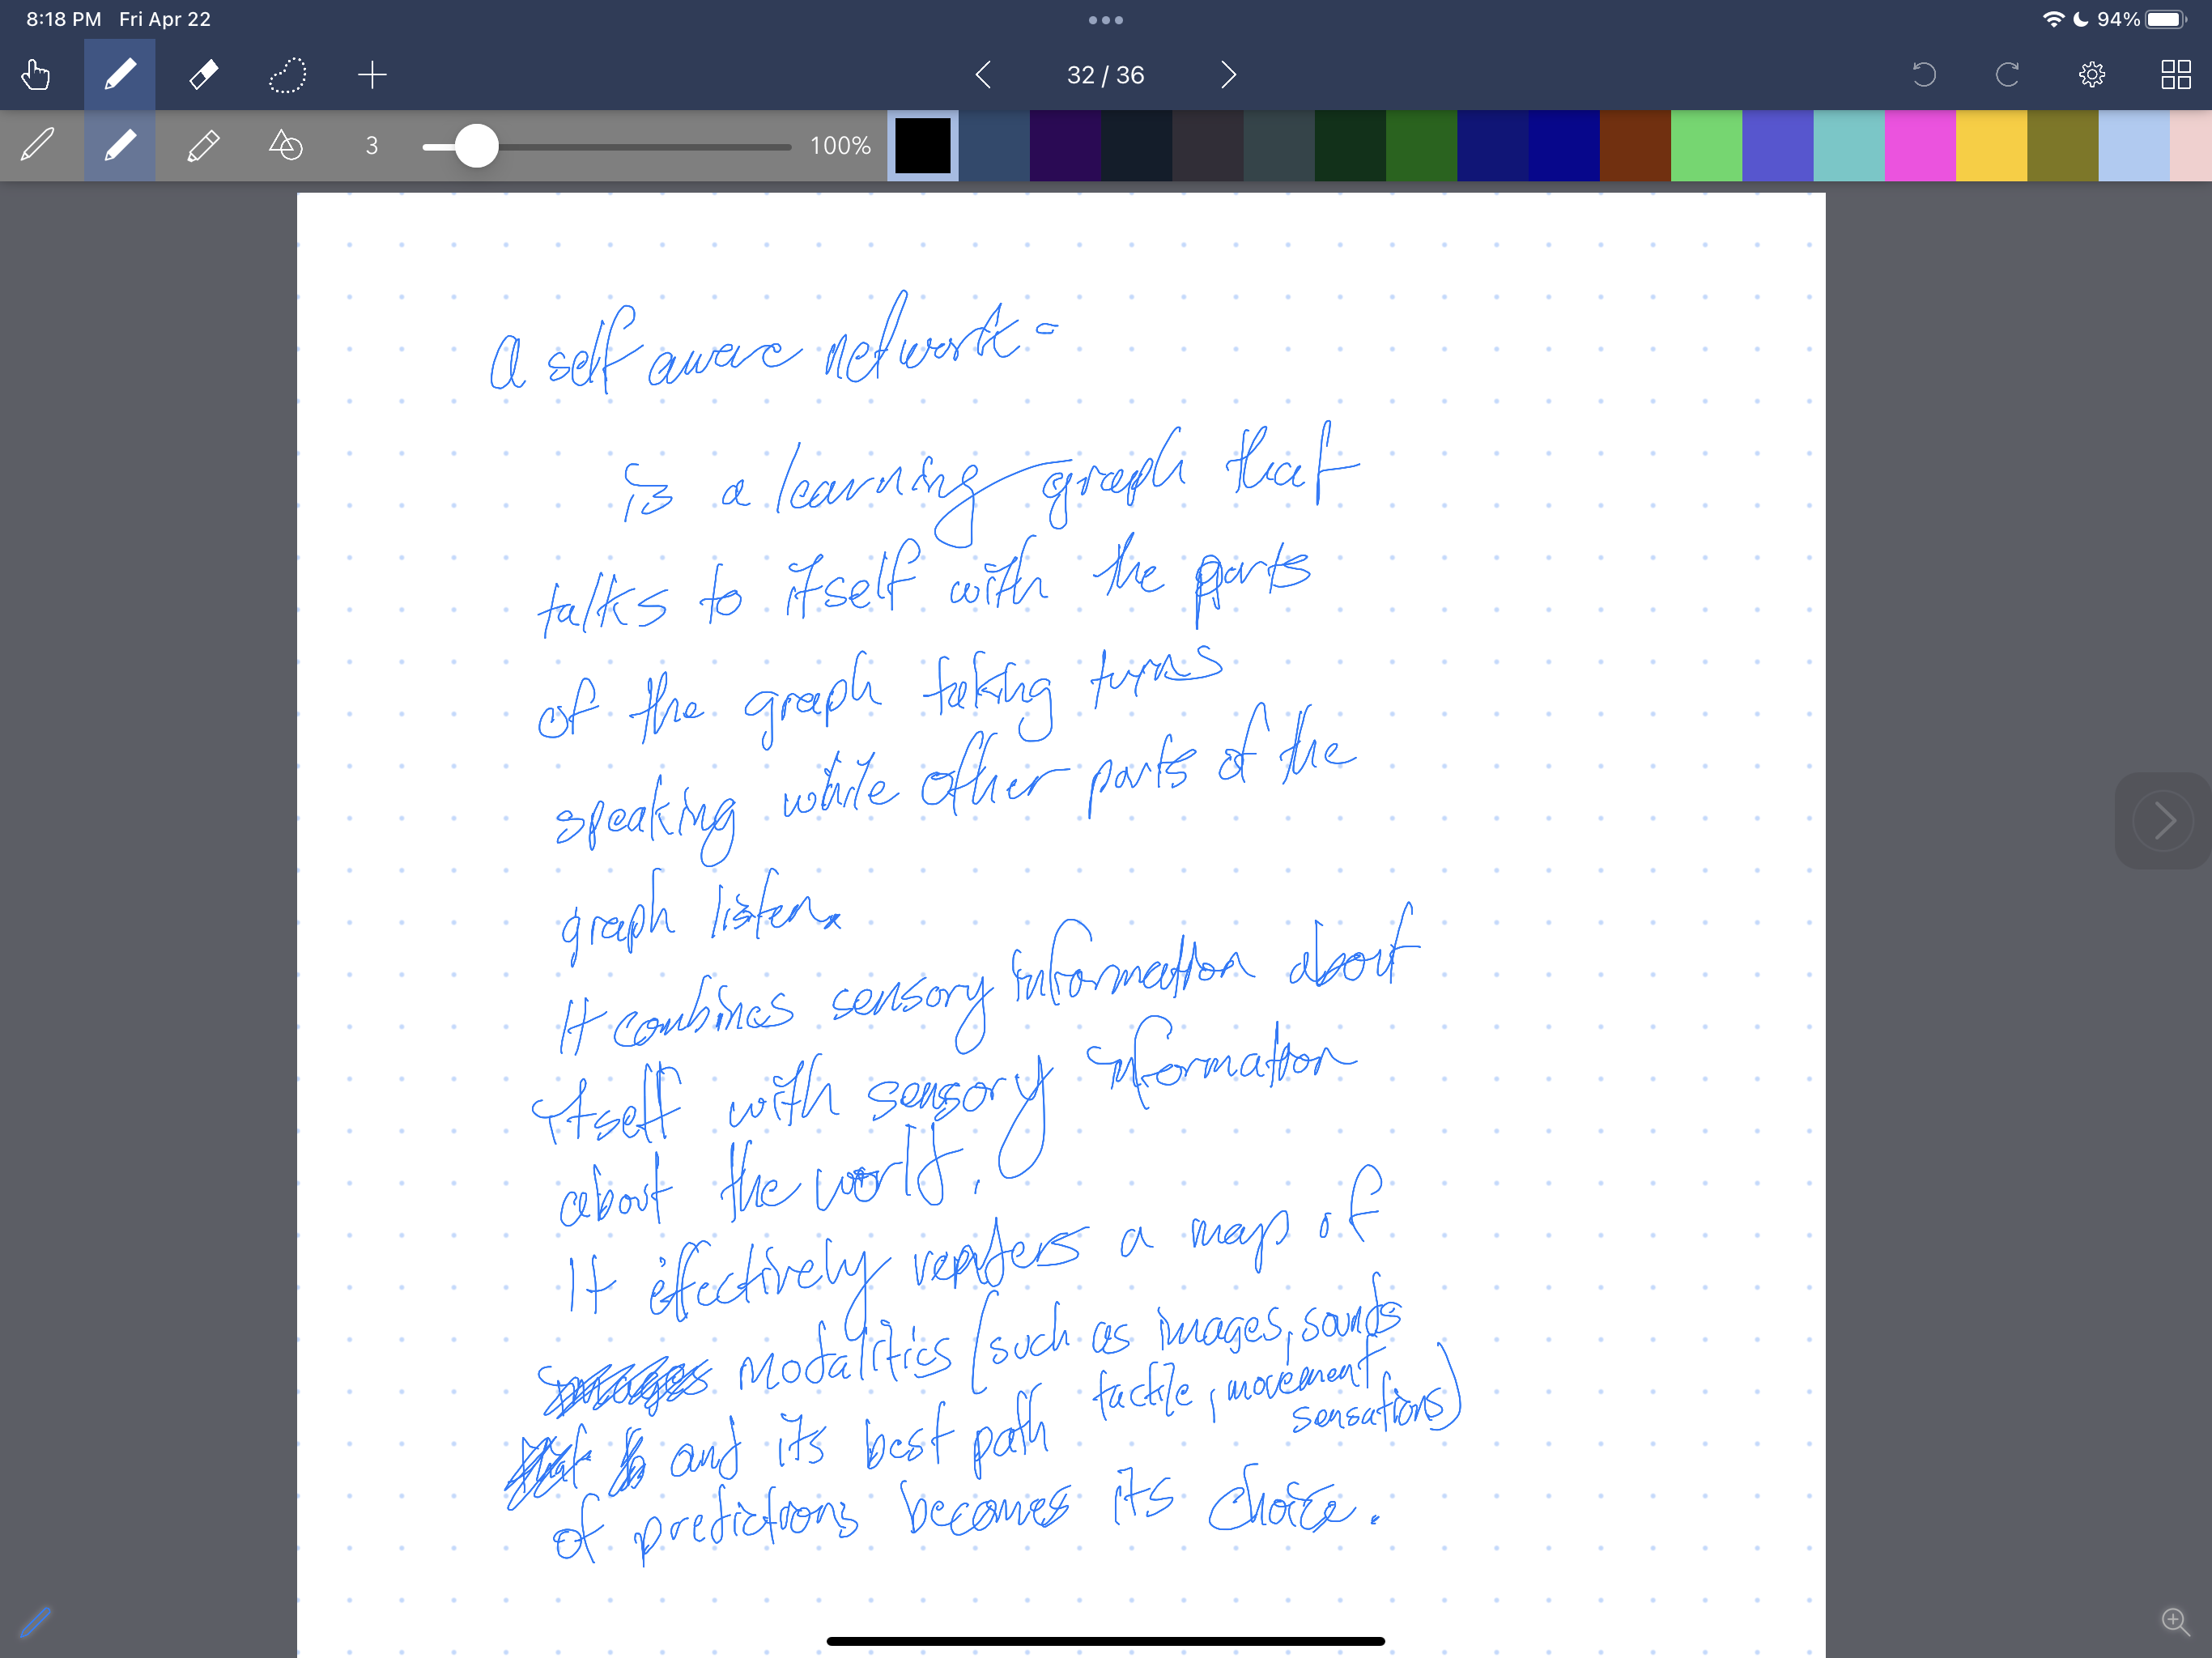 8:18 PM Fri Apr 22
94%
32 / 36
3
100%
a self aware network =
is a learning graph that
talks to itself with the parts
of the graph taking turns
speaking while other parts of the
graph listen.
It combines sensory information about
itself with sensory information
about the world.
It effectively renders a map of
images modalities (such as images, sounds
tactile, movement
sensations)
and its best path
of predictions becomes its choice.